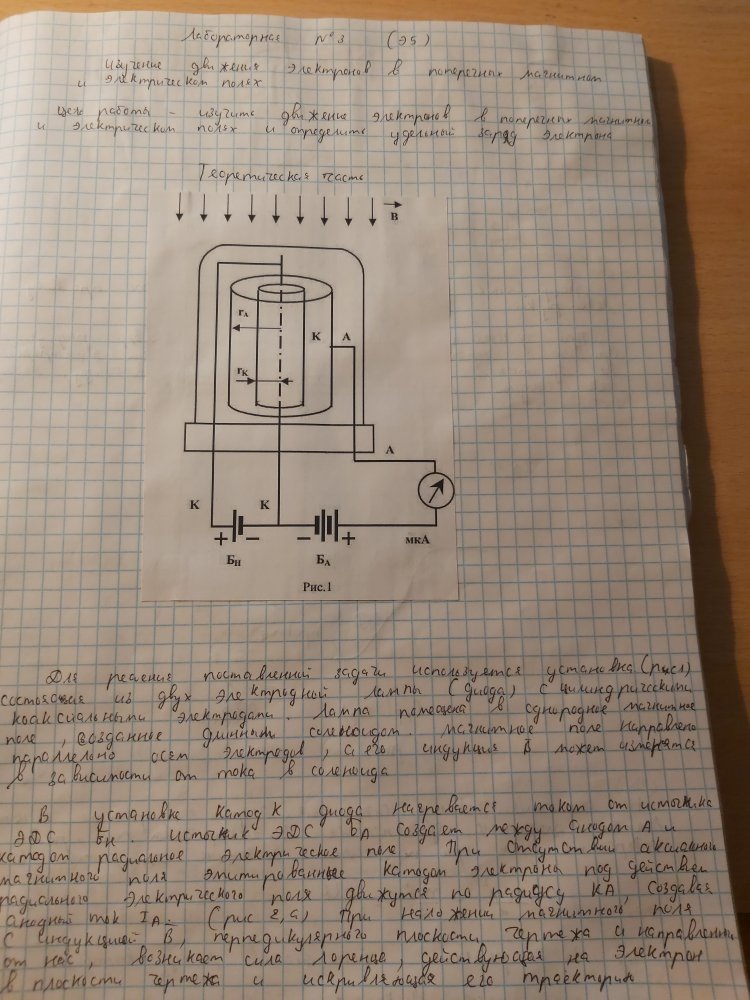 Лабораторная №3 (Э5)
Изучение движения электронов в поперечных магнитном
и электрическом полях
Цель работы - изучить движение электронов в поперечных магнитном
и электрическом полях и определить удельный заряд электрона
Теоретическая часть
B
rА
К А
rК
А
К К
+ − − + мкА
БН БА
Рис.1
Для решения поставленной задачи используется установка (рис1)
состоящая из двух электродной лампы (диода) с цилиндрическими
коаксиальными электродами. Лампа помещена в однородное магнитное
поле, созданное длинным соленоидом. магнитное поле направлено
параллельно осем электродов, а его индукция B может изменятся
в зависимости от тока в соленоида
В установке катод К диода нагревается током от источника
ЭДС БН. источник ЭДС БА создает между анодом А и
катодом радиальное электрическое поле. При отсутствии аксиального
магнитного поля эмитированные катодом электроны под действием
радиального электрического поля движутся по радиусу КА, создавая
анодный ток IА. (рис 2,а) При наложении магнитного поля
с индукцией В, перпедикулярного плоскости чертежа и направленным
от нас, возникает сила лоренца, действующая на электрон
в плоскости чертежа и искривляющая его траекторию